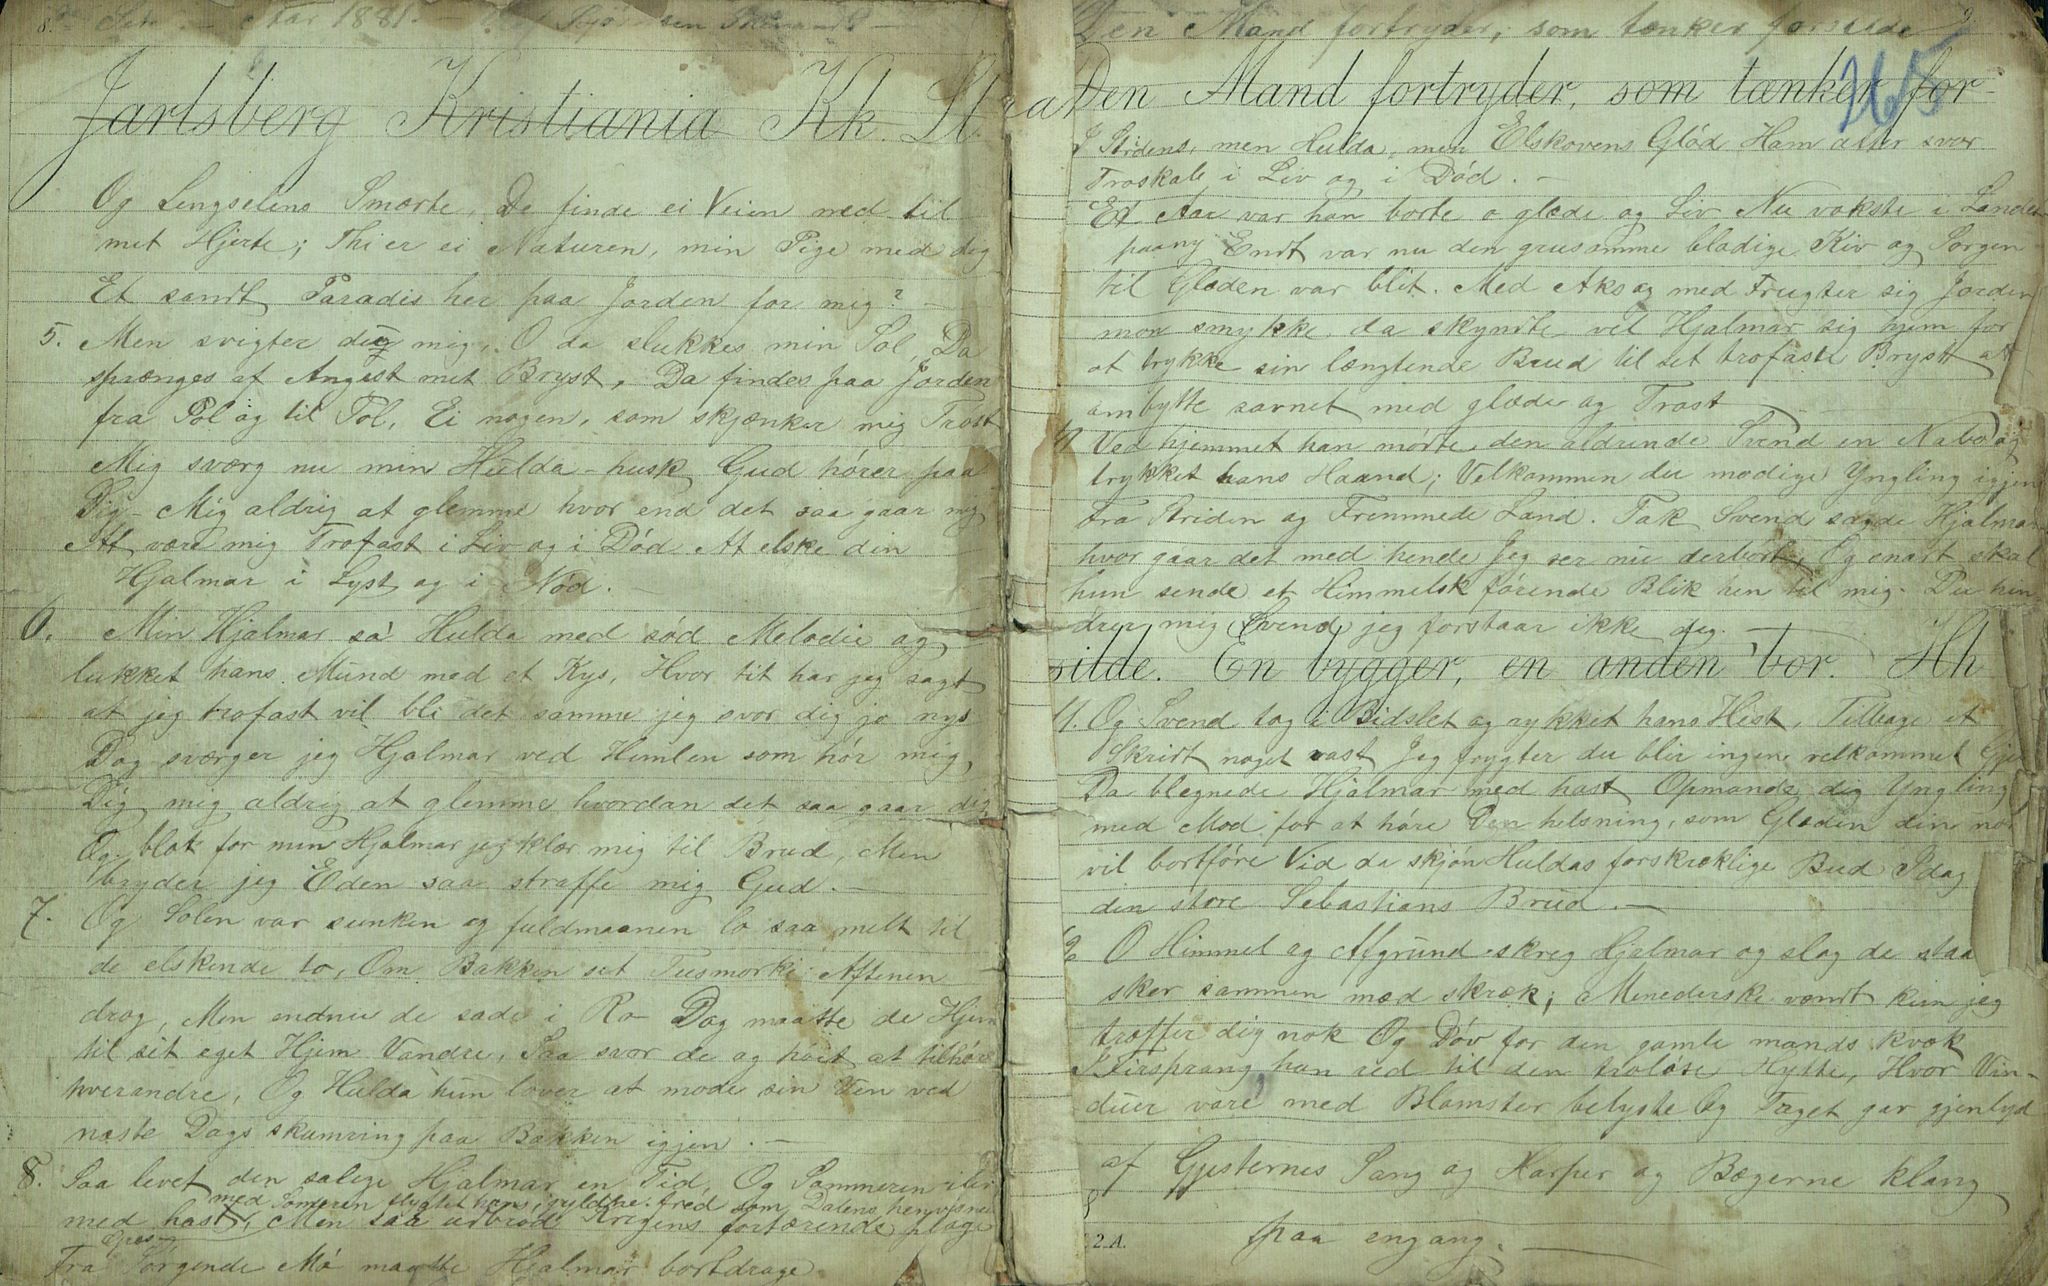 8.
Aar 1881.
Jarlsberg Kristiania Kk. St
Og Lengselens Smærte, De finde ei Veien med til
mit Hjerte; Thi er ei Naturen, min Pige med dig
Et sandt Paradis her paa Jorden for mig? —
5. Men svigter dig mig, O da slukkes min Sol, Da
sprænges af Angest mit Bryst, Da findes paa Jorden
fra Pol og til Pol, Ei nogen, som skjænker mig Trøst
Mig sværg nu min Hulda – husk Gud hører paa
Dig – Mig aldrig at glemme hvor end det saa gaar mig
At være mig Trofast i Liv og i Död At elske din
Hjalmar i Lyst og i Nöd. —
6. Min Hjalmar sa Hulda med söd Melodie og
lukket hans Mund med et Kys, Hvor tit har jeg sagt
at jeg trofast vil bli det samme jeg svor dig jo nys
Dog sværger jeg Hjalmar ved Himlen som hör mig,
Dig mig aldrig at glemme hvordan det saa gaar dig
Og blot for min Hjalmar jeg klær mig til Brud, Men
bryder jeg Eden saa straffe mig Gud. —
7. Og Solen var sunken og fuldmaanen lo saa melt til
de elskende to, Om Bakken set Tusmörke Aftenen
drog, Men endnu de sade i Ro – Dog maatte de Hjem
til sit eget Hjem Vandre, Saa svor de og höit at tilhöre
hverandre, Og Hulda hun lover at mode sin Ven ved
næste Dags skumring paa Bakken igjen. —
8. Saa levet den salige Hjalmar en Tid, Og Sommeren iler
med Somren flygtet hans gyldne fred som Dalens henvisnede
med hast, Men saa udbröd Krigens fortærende plage
Fra Sörgende Mö maatte Hjalmar bortdrage
Den Mand fortryder, som tænker forsilde
9.
265
Den Mand fortryder, som tænker for-
I Stridens, men Hulda, men Elskovens Glöd Ham atter svor
Troskab i Liv og i Död. —
Et Aar var han borte o glæde og Liv Nu vokste i Landet
paany Endt var nu den grusomme blodige Kiv og Sorgen
til Glæden var blit. Med Aks og med Frugter sig Jorden
mon smykke, da skyndte vel Hjalmar sig hjem for
at trykke sin længtende Brud til sit trofaste Bryst at
ombytte savnet med glæde og Trøst —
10 Ved hjemmet han mörte den aldrende Svend en Nabo og
trykket hans Haand; Velkommen du modige Yngling igjen
Fra Striden og Fremmede Land. Tak Svend sagde Hjalmar
hvor gaar det med hende Jeg ser nu derbort, Og snart skal
hun sende et Himmelsk förende Blik hen til mig. Du hin
drer mig Svend jeg forstaar ikke dig. —
silde. En bygger, en anden bor. Hh
11. Og Svend tog i Bidslet og rykket hans Hest, Tilbage et
Skridt noget vast Jeg frygter du blir ingen velkommet Gjest
Da blegnede Hjalmar med hast Opmande dig Yngling
med Mod for at höre Den helsning, som Glæden din nor
vil bortföre Vid da skjön Huldas forskræklige Bud Idag
den store Sebastians Brud. —
12 O Himmel og Afgrund skreg Hjalmar og slog de staa
sker sammen med skræk; Menederske vændt kun jeg
træffer dig nok Og Döv for den gamle mands kvæk
I Firsprang han red til den trolöse Hytte, Hvor Vin-
duer vare med Blomster belyste Og Taget gav gjenlyd
af Gjesternes Sang og Harper og Bægerne klang
paa engang. —
2.A.